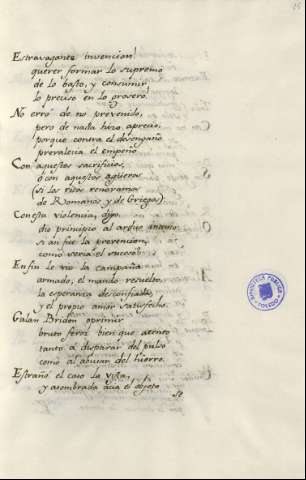 Estravagante invencion!
querer formar lo supremo
de lo basto, y consumir
lo preciso en lo grosero.
No erró de no prevenido,
pero de nada hizo aprecio,
porque contra el desengaño
prevalecia el empeño.
Con aquestos sacrificios,
ó con aquestos agüeros
(si los ritos renovamos
de Romanos y de Griegos)
Con esta violencia, dijo,
dio principio al arduo intento:
si asi fue la prevencion,
como seria el suceso?
En fin le vio la campaña
armado, el mando resuelto,
la esperanza desconfiada,
y el propio amor satisfecho.
Galan Bridon oprimir
bruto feroz bien que atento
tanto á disparar del pulso
como al abusar del hierro.
Estrañó el caso la vista,
y asombrada acia el objeto
se
BIBLIOTECA PUBLICA
TOLEDO